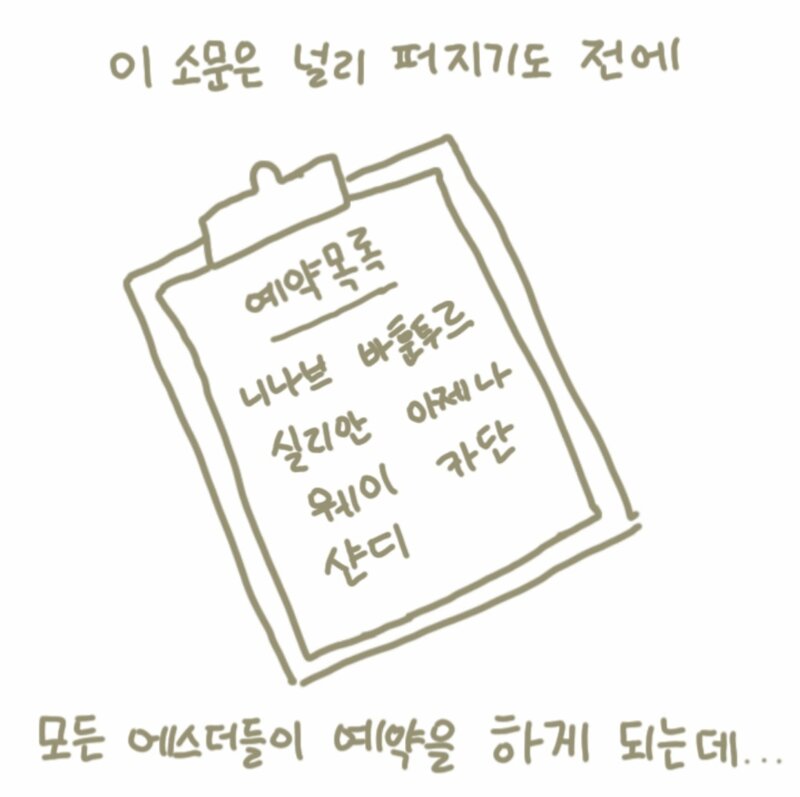 이 소문은 널리 퍼지기도 전에
예약목록
니나브 바훈투르
실리안 아제나
웨이 카단
샨디
모든 에스더들이 예약을 하게 되는데...